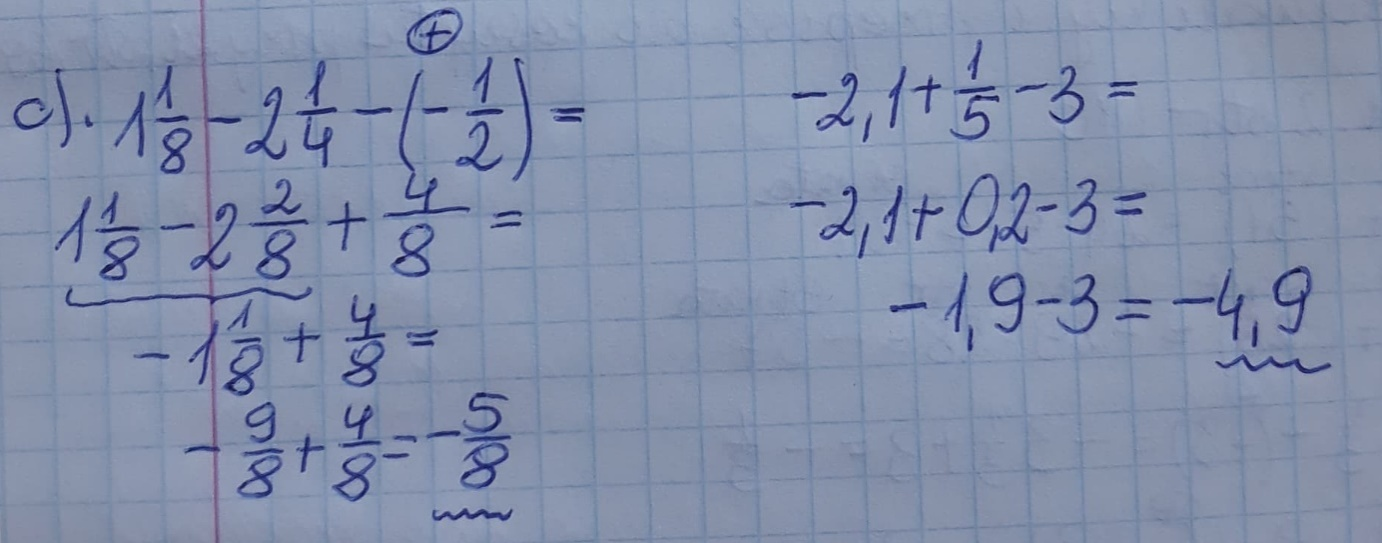 ⊕
c). 1 1/8 - 2 1/4 - (- 1/2) =
1 1/8 - 2 2/8 + 4/8 =
- 1 1/8 + 4/8 =
- 9/8 + 4/8 = - 5/8
-2,1 + 1/5 - 3 =
-2,1 + 0,2 - 3 =
-1,9 - 3 = -4,9